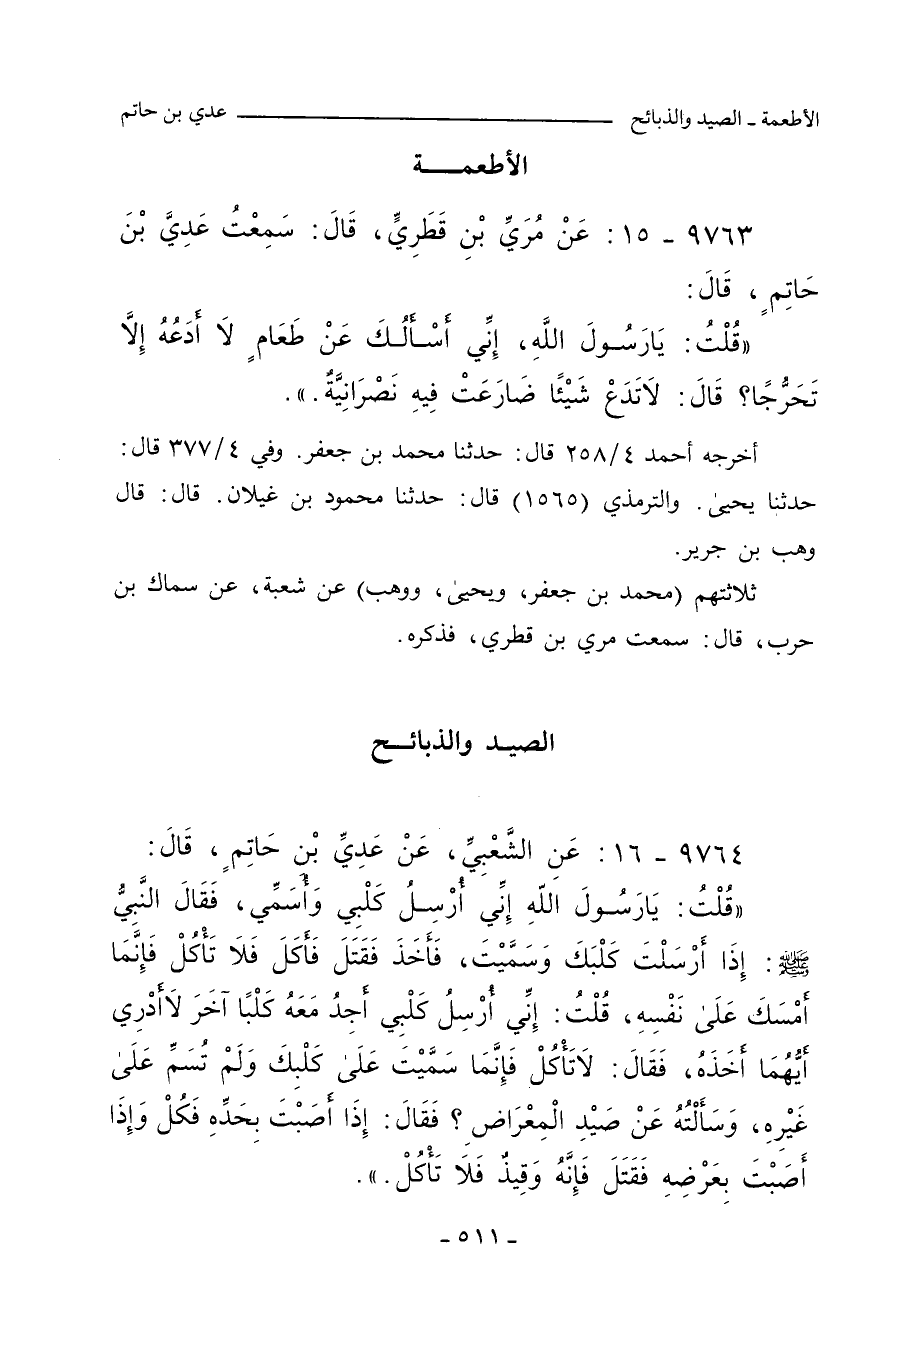 الأطعمة ـ الصيد والذبائح ــــــــــ عدي بن حاتم
الأطعمـــــة
٩٧٦٣ ـ ١٥ : عَنْ مُرَيِّ بْنِ قَطَرِيٍّ، قَالَ: سَمِعْتُ عَدِيَّ بْنَ
حَاتِمٍ، قَالَ:
«قُلْتُ: يَارَسُولَ اللَّهِ، إِنِّي أَسْأَلُكَ عَنْ طَعَامٍ لَا أَدَعُهُ إِلَّا
تَحَرُّجًا؟ قَالَ: لَاتَدَعْ شَيْئًا ضَارَعَتْ فِيهِ نَصْرَانِيَّةٌ.».
أخرجه أحمد ٢٥٨/٤ قال: حدثنا محمد بن جعفر. وفي ٣٧٧/٤ قال:
حدثنا يحيىٰ. والترمذي (١٥٦٥) قال: حدثنا محمود بن غيلان. قال: قال
وهب بن جرير.
ثلاثتهم (محمد بن جعفر، ويحيىٰ، ووهب) عن شعبة، عن سماك بن
حرب، قال: سمعت مري بن قطري، فذكره.
الصيـد والذبائـــح
٩٧٦٤ ـ ١٦ : عَنِ الشَّعْبِيِّ، عَنْ عَدِيِّ بْنِ حَاتِمٍ، قَالَ:
«قُلْتُ: يَارَسُولَ اللّهِ إِنِّي أُرْسِلُ كَلْبِي وَأُسَمِّي، فَقَالَ النَّبِيُّ
ﷺ: إِذَا أَرْسَلْتَ كَلْبَكَ وَسَمَّيْتَ، فَأَخَذَ فَقَتَلَ فَأَكَلَ فَلَا تَأْكُلْ فَإِنَّمَا
أَمْسَكَ عَلَىٰ نَفْسِهِ، قُلْتُ: إِنِّي أُرْسِلُ كَلْبِي أَجِدُ مَعَهُ كَلْبًا آخَرَ لَاأَدْرِي
أَيُّهُمَا أَخَذَهُ، فَقَالَ: لَاتَأْكُلْ فَإِنَّمَا سَمَّيْتَ عَلَىٰ كَلْبِكَ وَلَمْ تُسَمِّ عَلَىٰ
غَيْرِهِ، وَسَأَلْتُهُ عَنْ صَيْدِ الْمِعْرَاضِ؟ فَقَالَ: إِذَا أَصَبْتَ بِحَدِّهِ فَكُلْ وَإِذَا
أَصَبْتَ بِعَرْضِهِ فَقَتَلَ فَإِنَّهُ وَقِيذٌ فَلَا تَأْكُلْ.».
ـ ٥١١ ـ